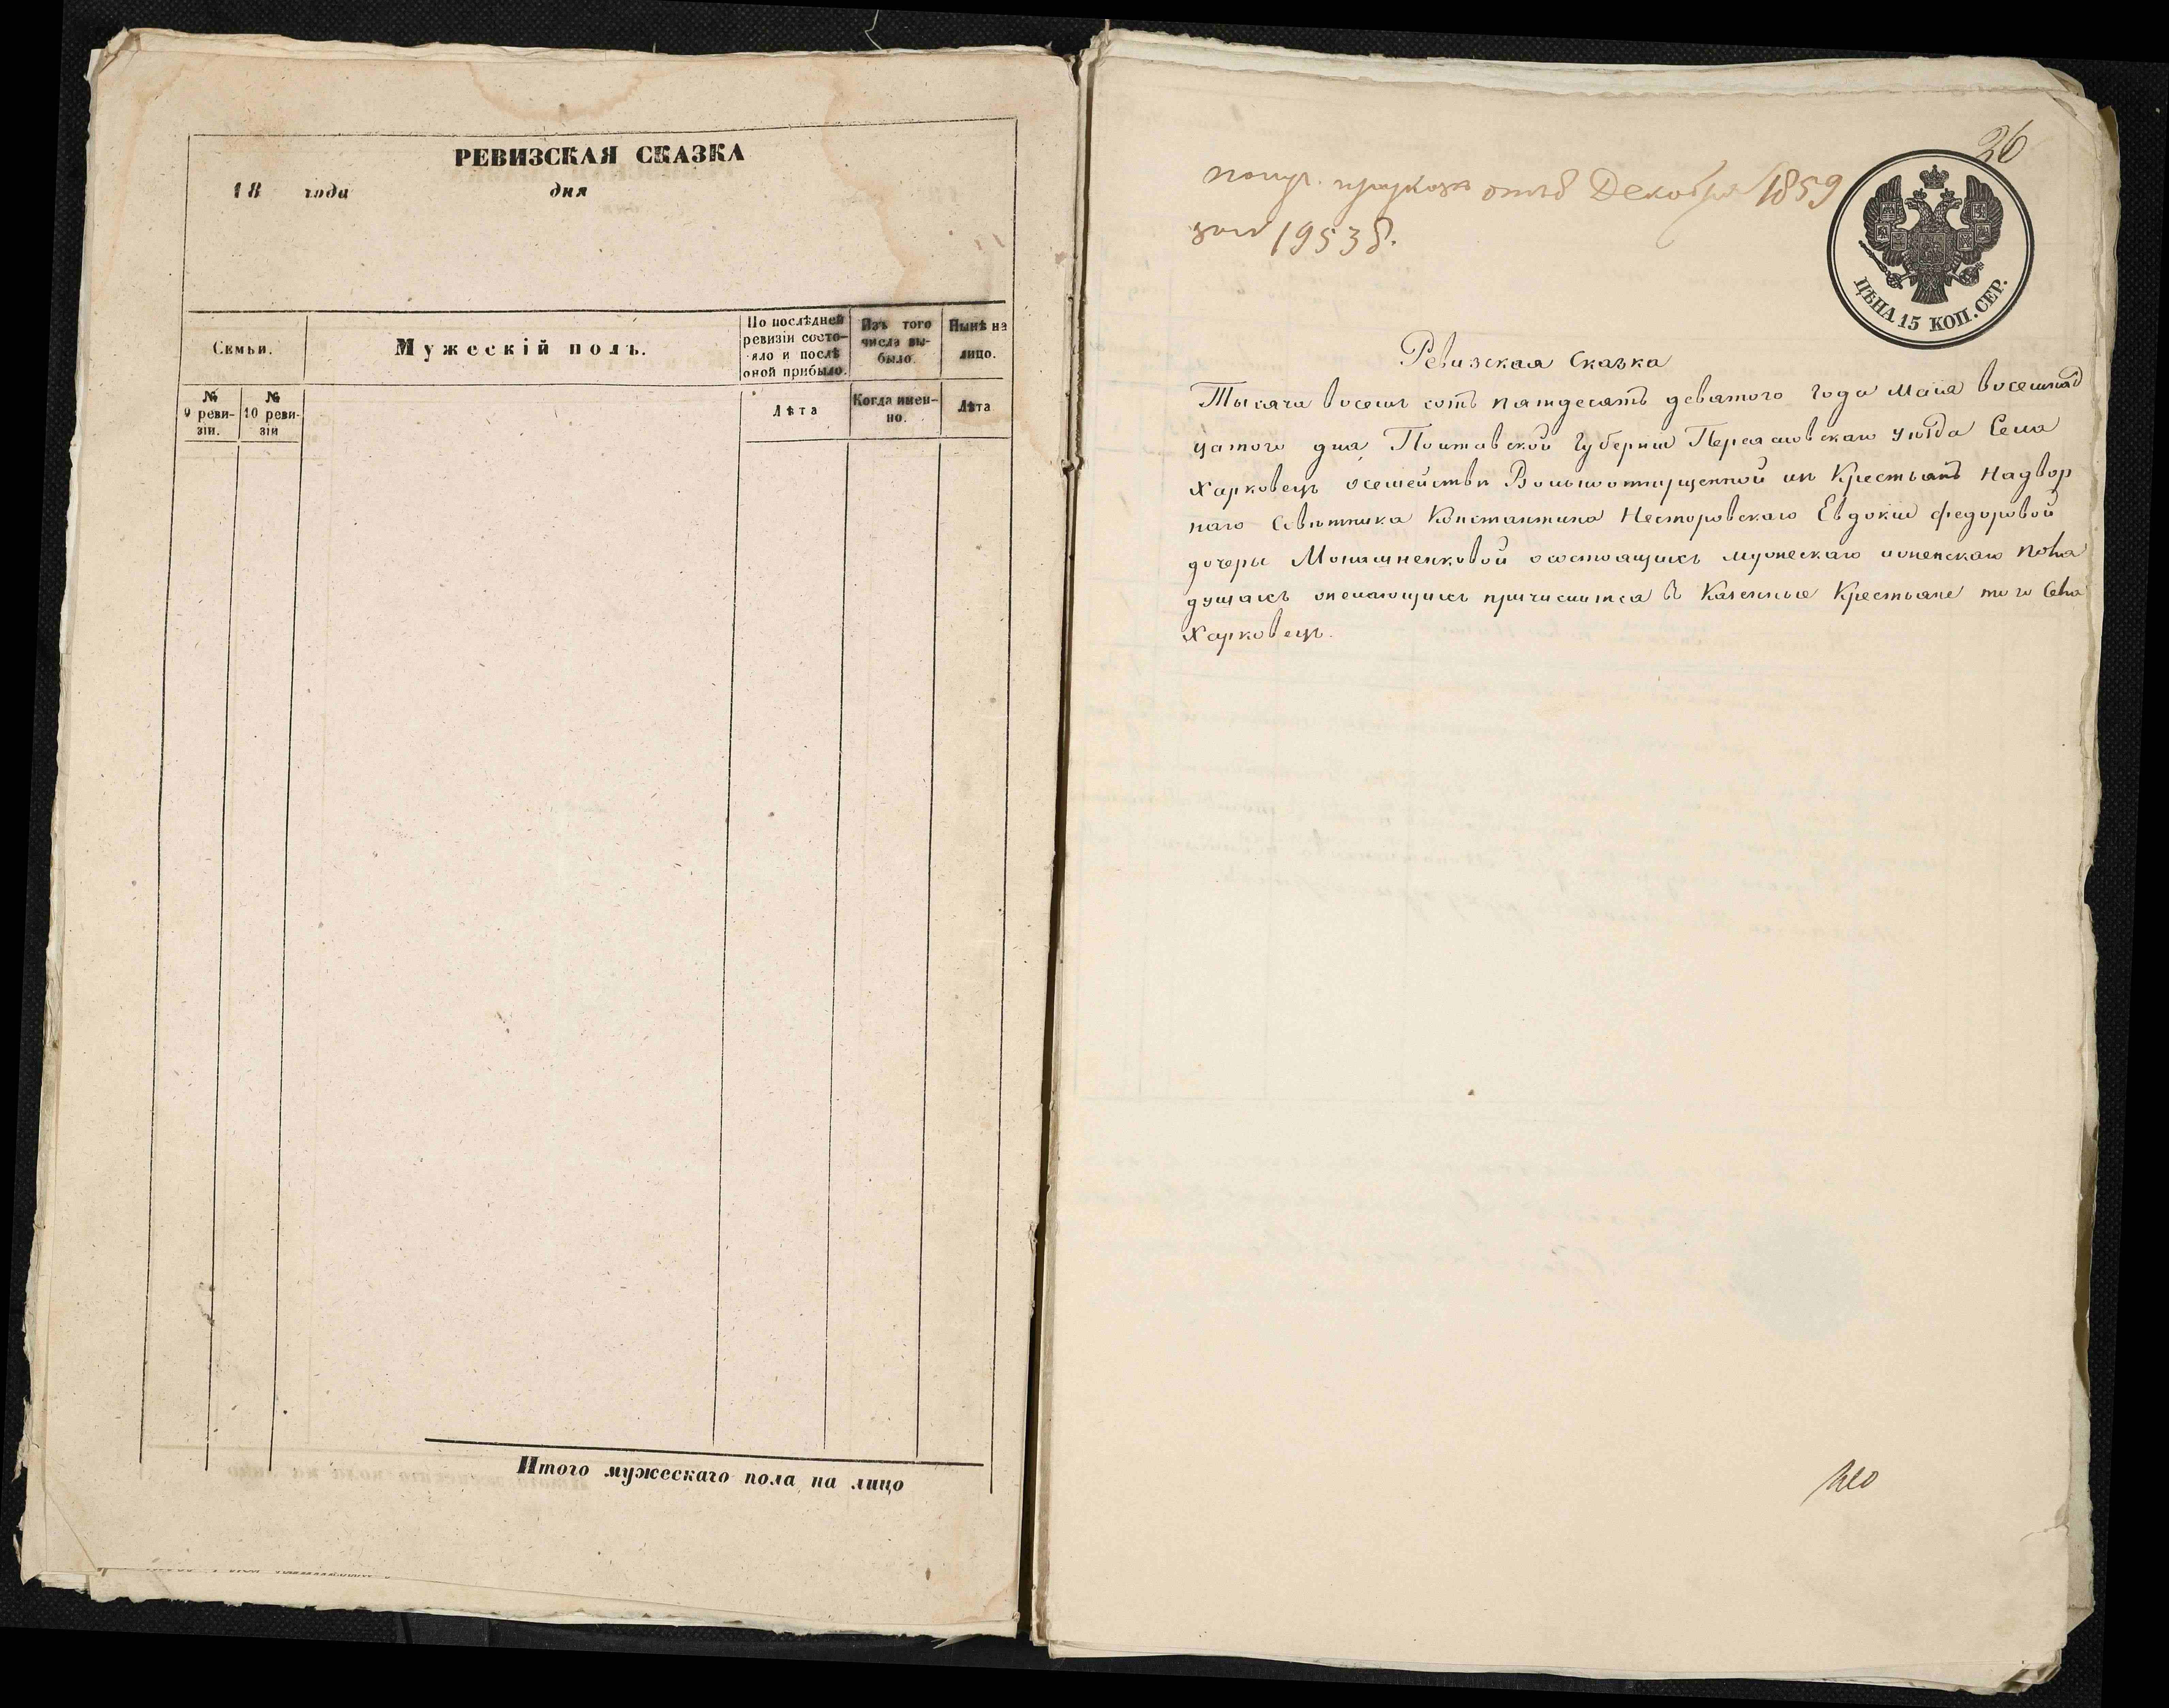 РЕВИЗСКАЯ СКАЗКА
18 года дня
Семьи.
Мужескій полъ.
По послѣдней ревизіи состо-
яло и послѣ
оной прибыло.
Изъ того
числа вы-
было.
Нынѣ на
лицо.
№
9 реви-
зіи.
№
10 реви-
зіи
Лѣта
Когда имен-
но.
Лѣта
Итого мужескаго пола на лицо
26
Декабря 1859
19538.
ЦѢНА 15 КОП. СЕР.
Ревизская Сказка
Тысяча восемь сотъ пятдесятъ девятого года Мая восемнад
цатого дня, Полтавской Губернии Переяславскаго уѣзда Села
Харковецъ осемействѣ Вольноотпущенной изъ Крестьянъ Надвор
наго Совѣтника Константина Несторовскаго Евдокии Федоровой
дочери осостоящихъ мужескаго иженскаго пола
душахъ желающихъ причислится въ Казенные Крестьяне того Села
Харковецъ.